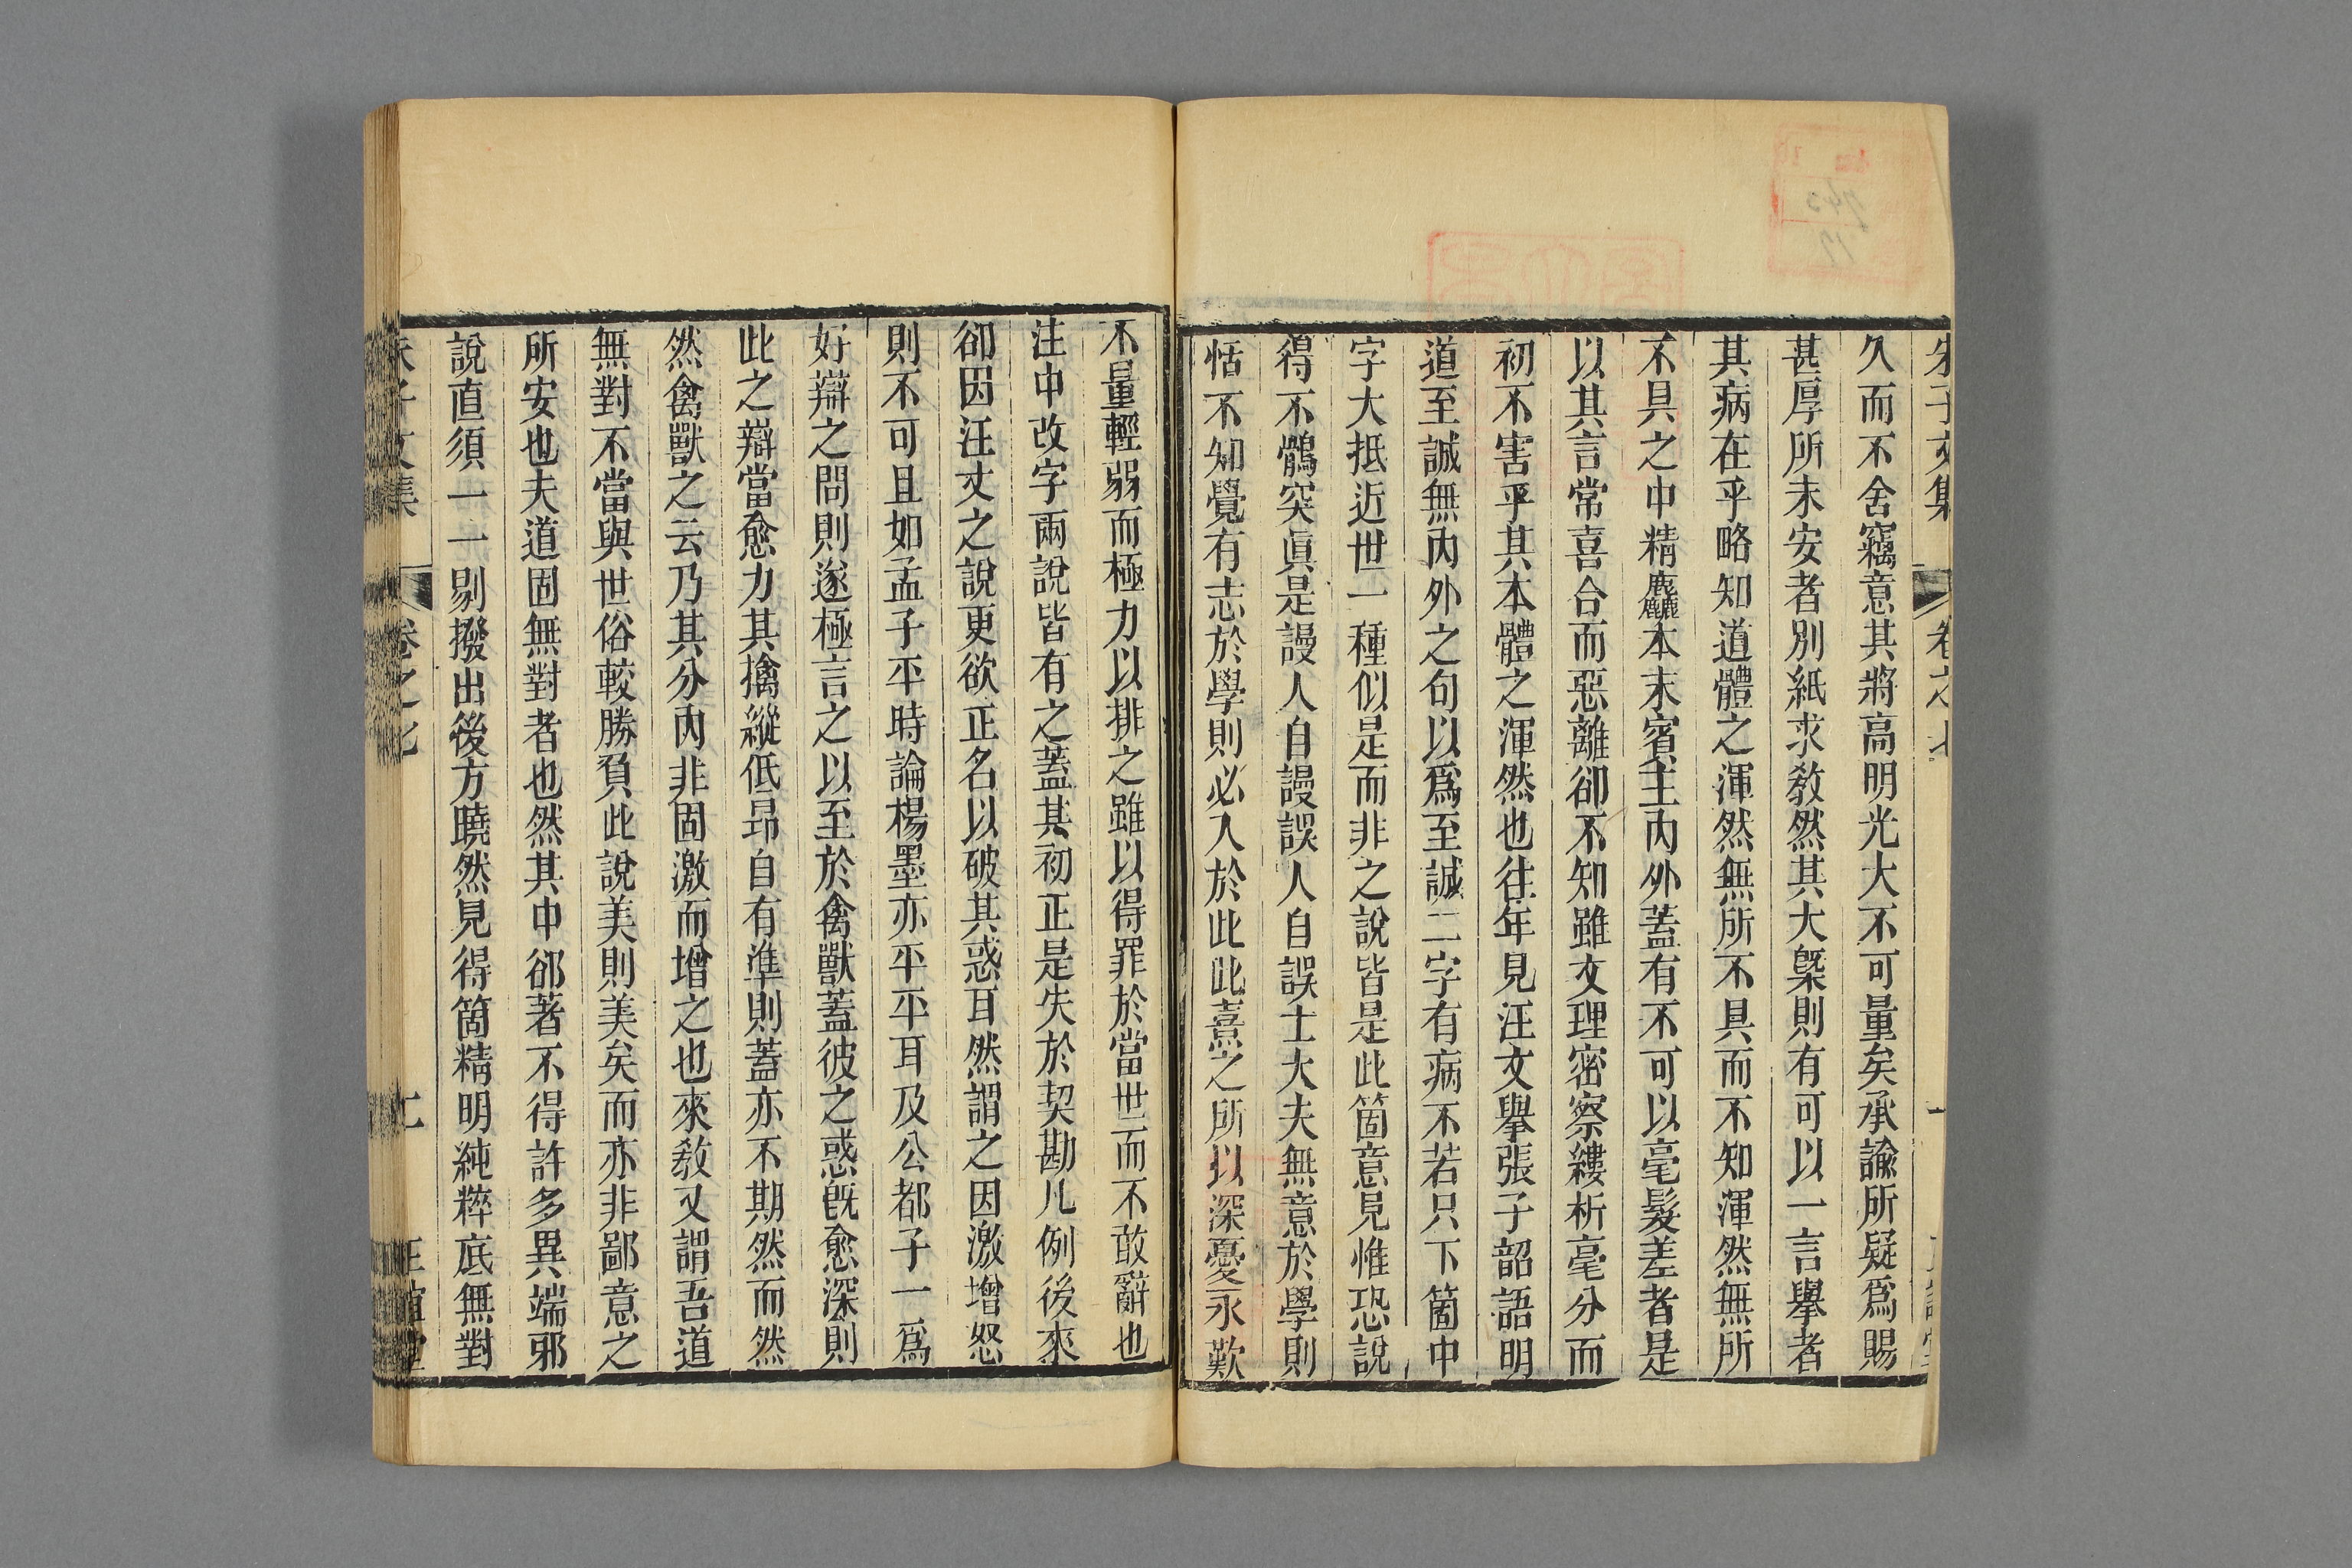 朱子文集 卷之七 一
久而不舍竊意其將高明光大不可量矣承諭所疑爲賜
甚厚所未安者別紙求敎然其大槩則有可以一言舉者
其病在乎略知道體之渾然無所不具而不知渾然無所
不具之中精麤本末賓主內外蓋有不可以毫髮差者是
以其言常喜合而惡離卻不知雖文理密察縷析毫分而
初不害乎其本體之渾然也往年見汪文舉張子韶語明
道至誠無內外之句以爲至誠二字有病不若只下箇中
字大抵近世一種似是而非之說皆是此箇意見惟恐說
得不鶻突眞是謾人自謾誤人自誤士大夫無意於學則
恬不知覺有志於學則必入於此此熹之所以深憂永歎
不量輕弱而極力以排之雖以得罪於當世而不敢辭也
注中改字兩說皆有之蓋其初正是失於契勘凡例後來
卻因汪丈之說更欲正名以破其惑耳然謂之因激增怒
則不可且如孟子平時論楊墨亦平平耳及公都子一爲
好辯之問則遂極言之以至於禽獸蓋彼之惑旣愈深則
此之辯當愈力其擒縱低昂自有準則蓋亦不期然而然
然禽獸之云乃其分內非固激而增之也來敎又謂吾道
無對不當與世俗較勝負此說美則美矣而亦非鄙意之
所安也夫道固無對者也然其中卻著不得許多異端邪
說直須一一剔撥出後方曉然見得箇精明純粹底無對
朱子文集 卷之七 二 正誼堂